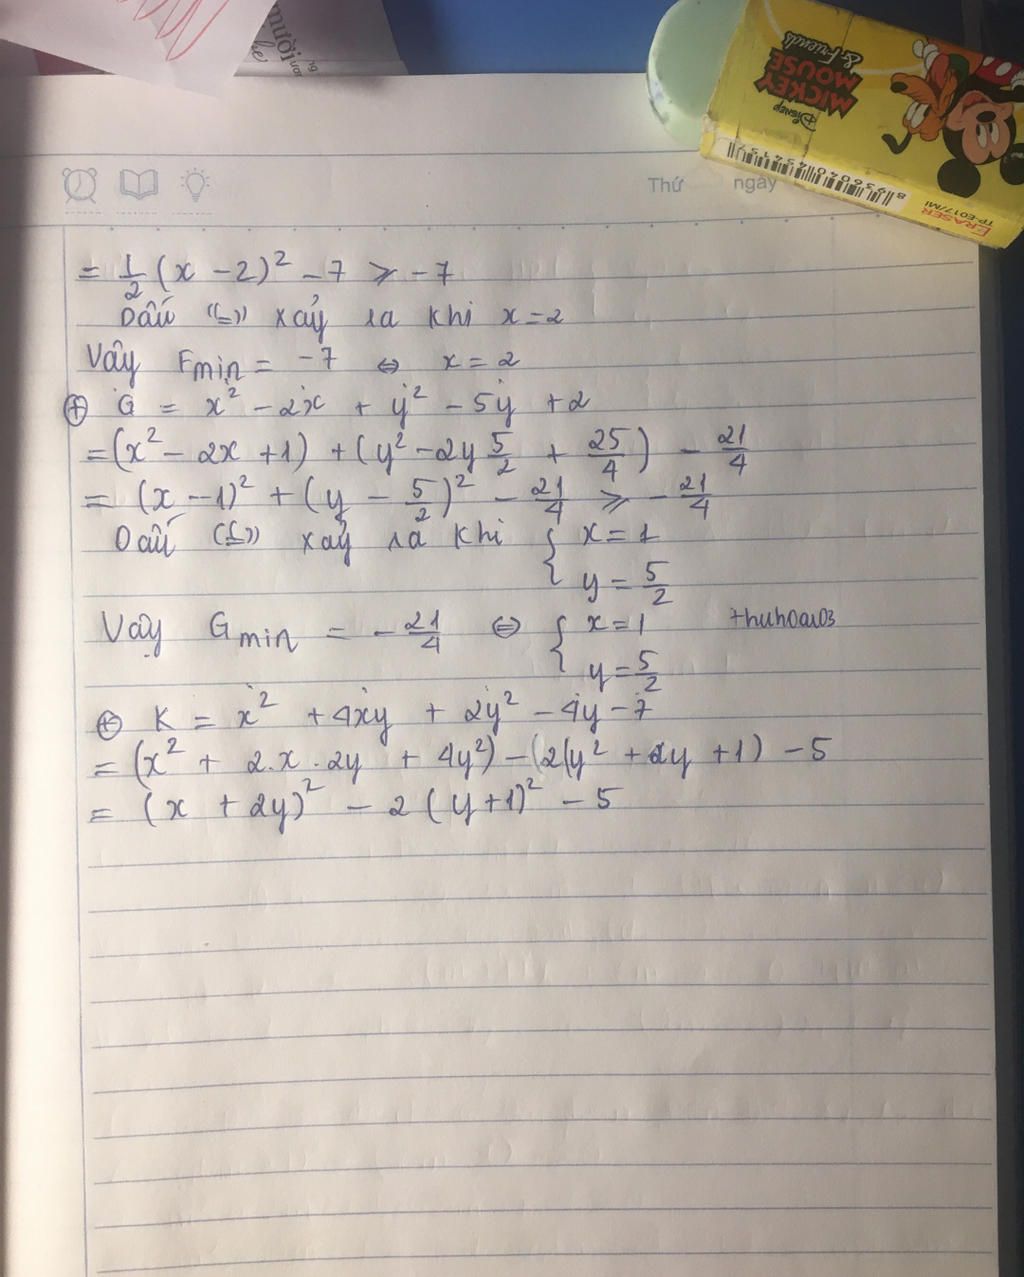 mười
DISNEP
MICKEY
MOUSE
& Friends
8 936040 4
ERASER
TP-E017/MI
Thứ ngày
= 1/2 (x - 2)² - 7 ⩾ -7
Dấu "=" xảy ra khi x = 2
Vây Fmin = -7 ⇔ x = 2
⊕ G = x² - 2x + y² - 5y + 2
= (x² - 2x + 1) + (y² - 2y 5/2 + 25/4) - 21/4
= (x - 1)² + (y - 5/2)² - 21/4 ⩾ - 21/4
Dấu "=" xảy ra khi { x = 1
y = 5/2
Vậy Gmin = - 21/4 ⇔ { x = 1 thuhoai03
y = 5/2
⊕ K = x² + 4xy + 2y² - 4y - 7
= (x² + 2.x.2y + 4y²) - (2(y² + 2y + 1) - 5
= (x + 2y)² - 2(y + 1)² - 5